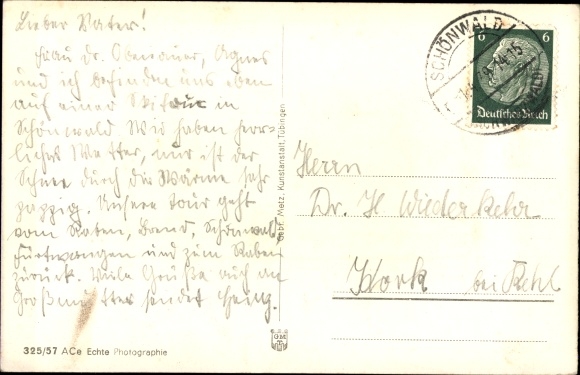 Lieber Vater!
Frau Dr. Obenauer, Agnes
und ich befinden uns eben
auf einer Skitour in
Schönwald. Wir haben herr-
liches Wetter, nur ist der
Schnee durch die Wärme sehr
pappig. Unsere Tour geht
vom Raben, Schönwald,
Furtwangen und zum Raben
zurück. Viele Grüße auch an
Großmutter sendet
325/57 ACe Echte Photographie
Gebr. Metz, Kunstanstalt, Tübingen
GMT
SCHÖNWALD
6 6
Deutsches Reich
Herrn
Dr. H Wiederkehr
Kork bei Kehl